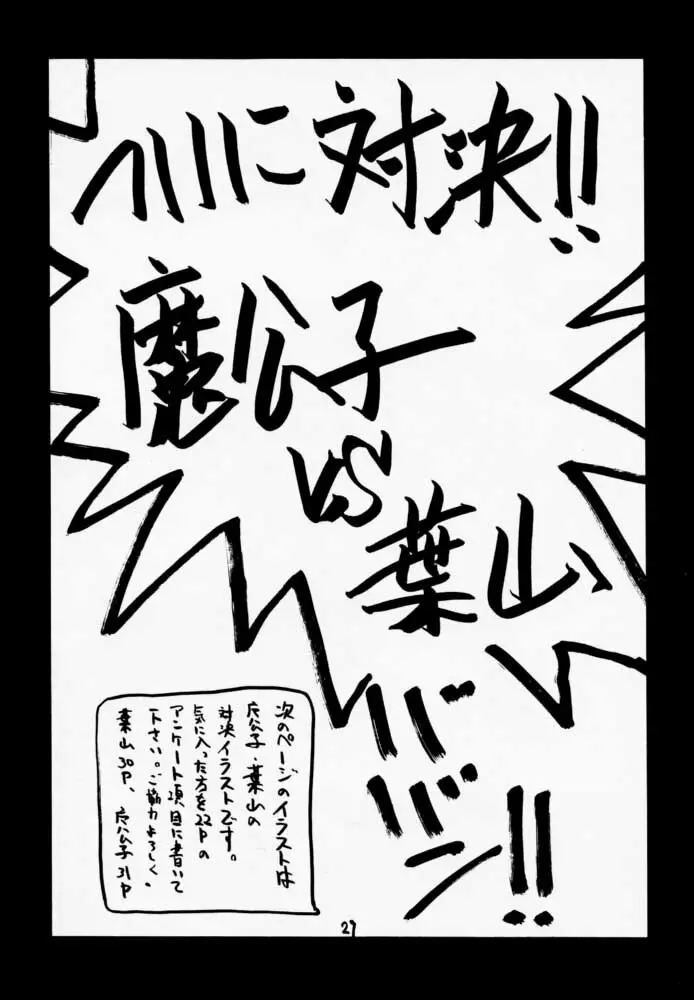 ついに対決!!
魔公子
VS
葉山
ババーン!!
次のページのイラストは
広公子・葉山の
対決イラストです。
気に入った方を22Pの
アンケート項目に書いて
下さい。ご協力よろしく。
葉山30P、広公子31P
29